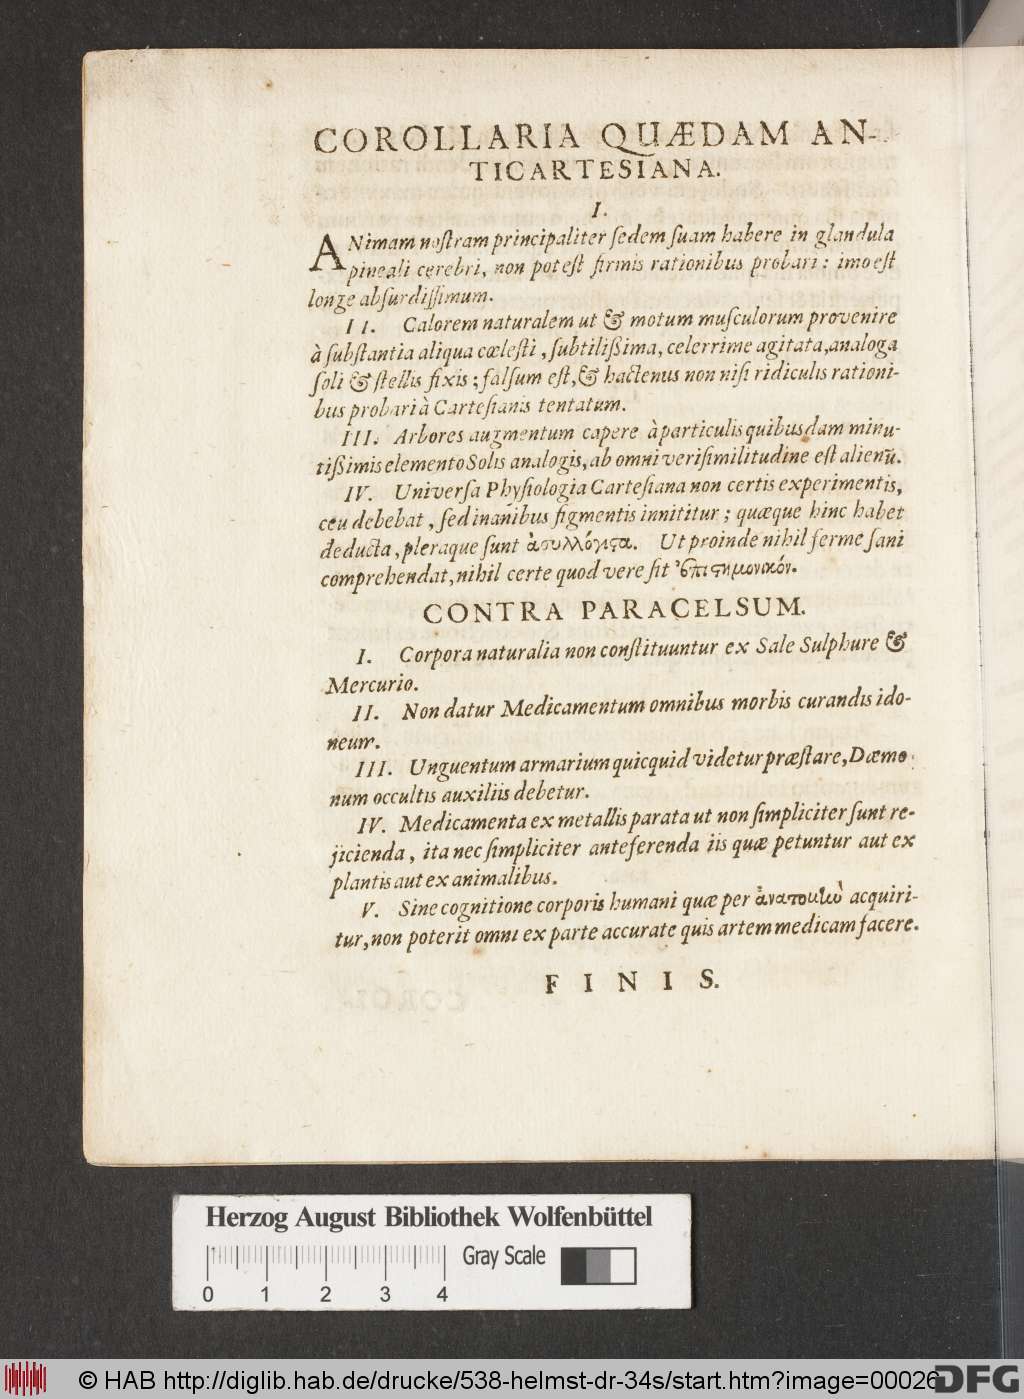 COROLLARIA QUÆDAM AN-
TICARTESIANA.
I.
ANimam noſtram principaliter ſedem ſuam habere in glandula
pineali cerebri, non poteſt firmis rationibus probari: imo eſt
longe abſurdiſſimum.
II. Calorem naturalem ut & motum muſculorum provenire
à ſubſtantia aliqua cœleſti, ſubtilißima, celerrime agitata, analoga
ſoli & ſtellis fixis; falſum eſt, & hactenus non niſi ridiculis rationi-
bus probari à Carteſianis tentatum.
III. Arbores augmentum capere à particulis quibusdam minu-
tißimis elemento Solis analogis, ab omni veriſimilitudine eſt alienū.
IV. Univerſa Phyſiologia Carteſiana non certis experimentis,
ceu debebat, ſed inanibus figmentis innititur; quæque hinc habet
deducta, pleraque ſunt ἀσυλλόγιϛα. Ut proinde nihil ferme ſani
comprehendat, nihil certe quod vere ſit ἐπιϛημονικόν.
CONTRA PARACELSUM.
I. Corpora naturalia non conſtituuntur ex Sale Sulphure &
Mercurio.
II. Non datur Medicamentum omnibus morbis curandis ido-
neum.
III. Unguentum armarium quicquid videtur præſtare, Dæmo
num occultis auxiliis debetur.
IV. Medicamenta ex metallis parata ut non ſimpliciter ſunt re-
jicienda, ita nec ſimpliciter anteferenda iis quæ petuntur aut ex
plantis aut ex animalibus.
V. Sine cognitione corporis humani quæ per acquiri-
tur, non poterit omni ex parte accurate quis artem medicam facere.
FINIS.
Herzog August Bibliothek Wolfenbüttel
Gray Scale
0 1 2 3 4
© HAB http://diglib.hab.de/drucke/538-helmst-dr-34s/start.htm?image=00026
DFG